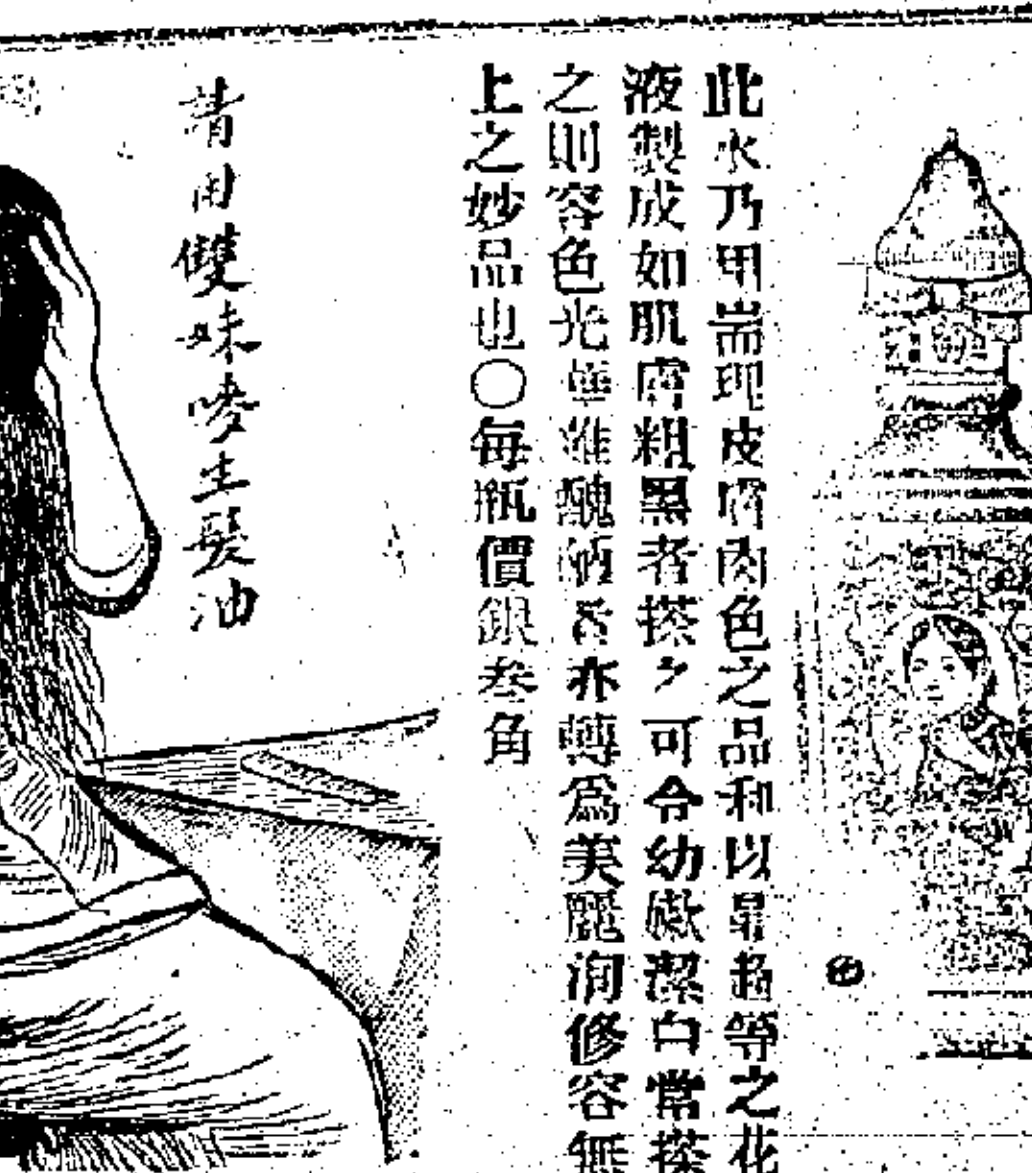 此水乃甲耑現皮膚肉色之品和以最超等之花
液製成如肌膚粗黑者搽々可令幼嫩潔白常搽
之則容色光華雖醜陋者亦轉爲美麗洵修容無
上之妙品也〇每瓶價銀叁角
請用雙妹嘜生髮油